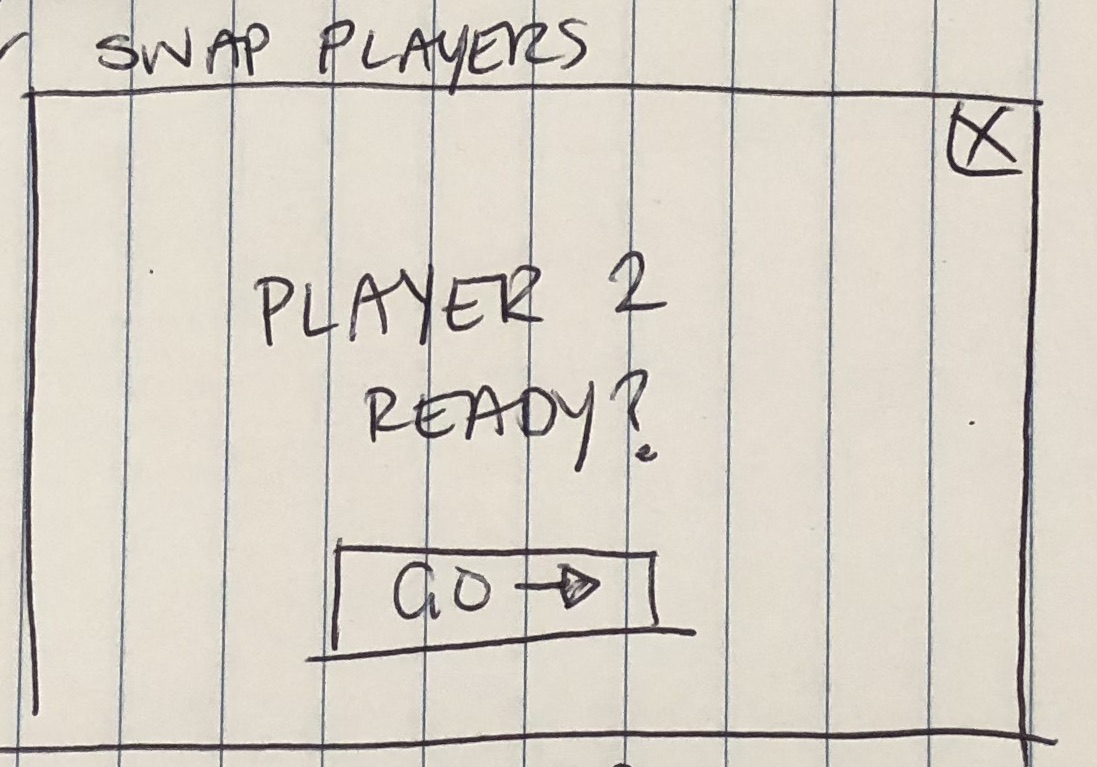 SWAP PLAYERS
X
PLAYER 2
READY?
GO →